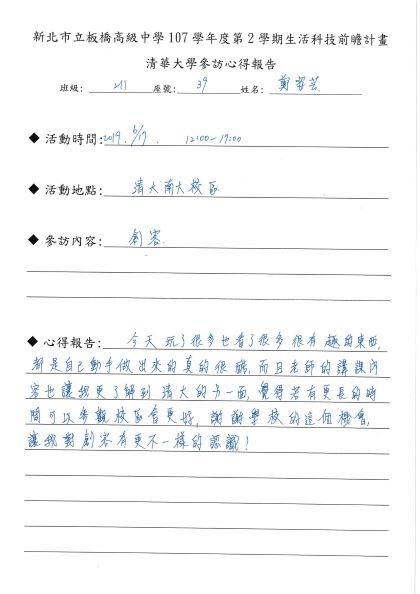 新北市立板橋高級中學 107 學年度第 2 學期生活科技前瞻計畫
清華大學參訪心得報告
班級: 211 座號: 39 姓名: 鄭 芸
◆ 活動時間: 2019. 6/17. 12:00~17:00
◆ 活動地點: 清大南大校區
◆ 參訪內容: 創客.
◆ 心得報告: 今天玩了很多也看了很多很有趣的東西,
都是自己動手做出來的真的很酷.而且老師的講課內
容也讓我更了解到清大的另一面,覺得若有更長的時
間可以參觀校區會更好,謝謝學校給這個機會,
讓我對創客有更不一樣的認識!